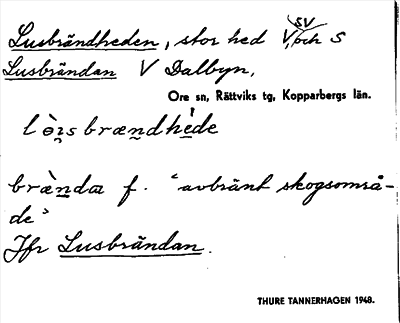 Lusbrändheden, stor hed V, och S SV
Lusbrändan V Dalbyn,
Ore sn, Rättviks tg, Kopparbergs län.
brænda f. "avbränt skogsområ-
de"
Jfr Lusbrändan.
THURE TANNERHAGEN 1948.